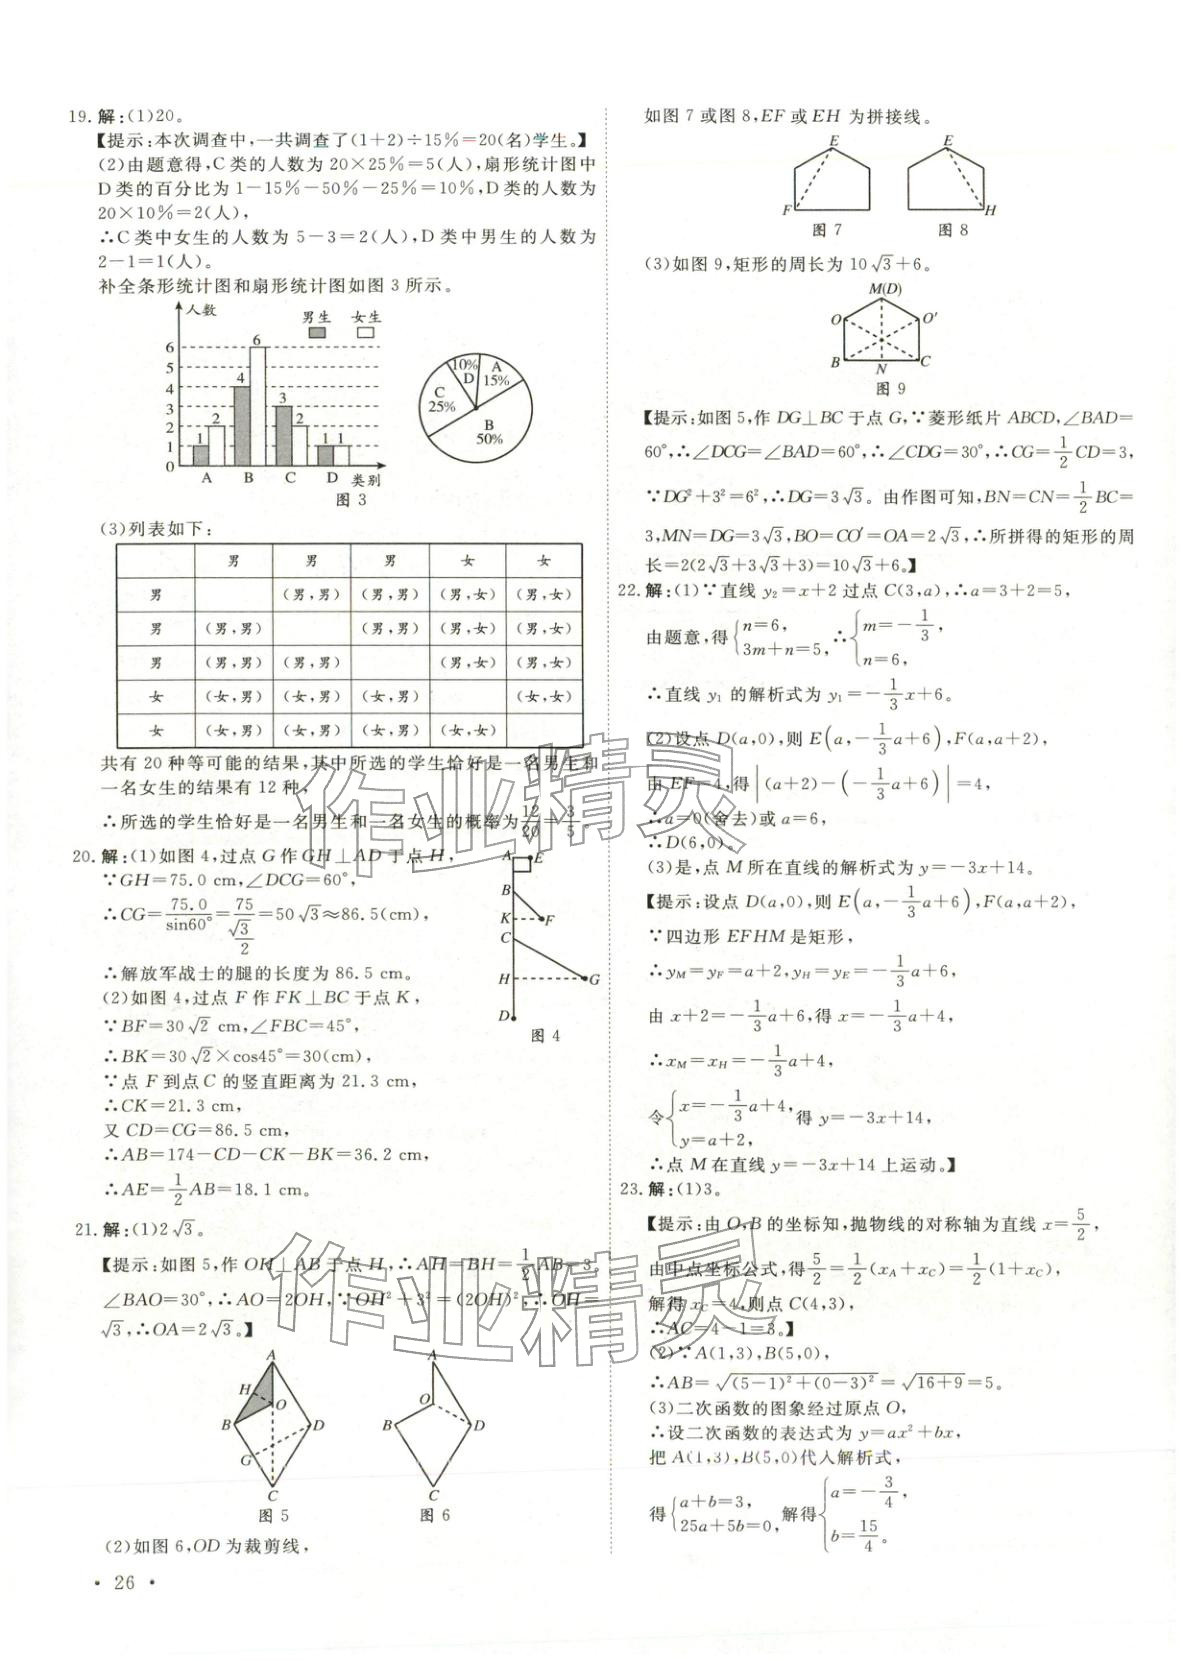 19. 解:(1)20。
【提示:本次调查中,一共调查了(1+2)÷15%=20(名)学生。】
(2)由题意得,C类的人数为20×25%=5(人),扇形统计图中
D类的百分比为1-15%-50%-25%=10%,D类的人数为
20×10%=2(人),
∴C类中女生的人数为5-3=2(人),D类中男生的人数为
2-1=1(人)。
补全条形统计图和扇形统计图如图3所示。
人数
男生 女生
6
5
4
3
2
1
0
1 2 4 6 3 2 1 1
A B C D 类别
10% D
A 15%
C 25%
B 50%
图3
(3)列表如下:
男 男 男 女 女
男 (男,男) (男,男) (男,女) (男,女)
男 (男,男) (男,男) (男,女) (男,女)
男 (男,男) (男,男) (男,女) (男,女)
女 (女,男) (女,男) (女,男) (女,女)
女 (女,男) (女,男) (女,男) (女,女)
共有20种等可能的结果,其中所选的学生恰好是一名男生和
一名女生的结果有12种,
∴所选的学生恰好是一名男生和一名女生的概率为12/20=3/5
20. 解:(1)如图4,过点G作GH⊥AD于点H,
∵GH=75.0 cm,∠DCG=60°,
∴CG=75.0/sin60°=75/(√3/2)=50√3≈86.5(cm),
∴解放军战士的腿的长度为86.5 cm。
(2)如图4,过点F作FK⊥BC于点K,
∵BF=30√2 cm,∠FBC=45°,
∴BK=30√2×cos45°=30(cm),
∵点F到点C的竖直距离为21.3 cm,
∴CK=21.3 cm,
又CD=CG=86.5 cm,
∴AB=174-CD-CK-BK=36.2 cm,
∴AE=1/2AB=18.1 cm。
A E
B
K F
C
H G
D
图4
21. 解:(1)2√3。
【提示:如图5,作OH⊥AB于点H,∴AH=BH=1/2AB=3。
∠BAO=30°,∴AO=2OH,∵OH²+3²=(2OH)²,∴OH=
√3,∴OA=2√3。】
A
H
O
B D
G
C
图5
A
O
B D
C
图6
(2)如图6,OD为裁剪线,
• 26 •
如图7或图8,EF或EH为拼接线。
E
F
图7
E
H
图8
(3)如图9,矩形的周长为10√3+6。
M(D)
O O′
B N C
图9
【提示:如图5,作DG⊥BC于点G,∵菱形纸片ABCD,∠BAD=
60°,∴∠DCG=∠BAD=60°,∴∠CDG=30°,∴CG=1/2CD=3,
∵DG²+3²=6²,∴DG=3√3。由作图可知,BN=CN=1/2BC=
3,MN=DG=3√3,BO=CO′=OA=2√3,∴所拼得的矩形的周
长=2(2√3+3√3+3)=10√3+6。】
22. 解:(1)∵直线y₂=x+2过点C(3,a),∴a=3+2=5,
由题意,得{n=6, 3m+n=5, ∴{m=-1/3, n=6,
∴直线y₁的解析式为y₁=-1/3x+6。
(2)设点D(a,0),则E(a,-1/3a+6),F(a,a+2),
由EF=4,得|(a+2)-(-1/3a+6)|=4,
∴a=0(舍去)或a=6,
∴D(6,0)。
(3)是,点M所在直线的解析式为y=-3x+14。
【提示:设点D(a,0),则E(a,-1/3a+6),F(a,a+2),
∵四边形EFHM是矩形,
∴y_M=y_F=a+2,y_H=y_E=-1/3a+6,
由x+2=-1/3a+6,得x=-1/3a+4,
∴x_M=x_H=-1/3a+4,
令{x=-1/3a+4, y=a+2, 得y=-3x+14,
∴点M在直线y=-3x+14上运动。】
23. 解:(1)3。
【提示:由O,B的坐标知,抛物线的对称轴为直线x=5/2,
由中点坐标公式,得5/2=1/2(x_A+x_C)=1/2(1+x_C),
解得x_C=4,则点C(4,3),
∴AC=4-1=3。】
(2)∵A(1,3),B(5,0),
∴AB=√((5-1)²+(0-3)²)=√(16+9)=5。
(3)二次函数的图象经过原点O,
∴设二次函数的表达式为y=ax²+bx,
把A(1,3),B(5,0)代入解析式,
得{a+b=3, 25a+5b=0, 解得{a=-3/4, b=15/4。
作业精灵
作业精灵